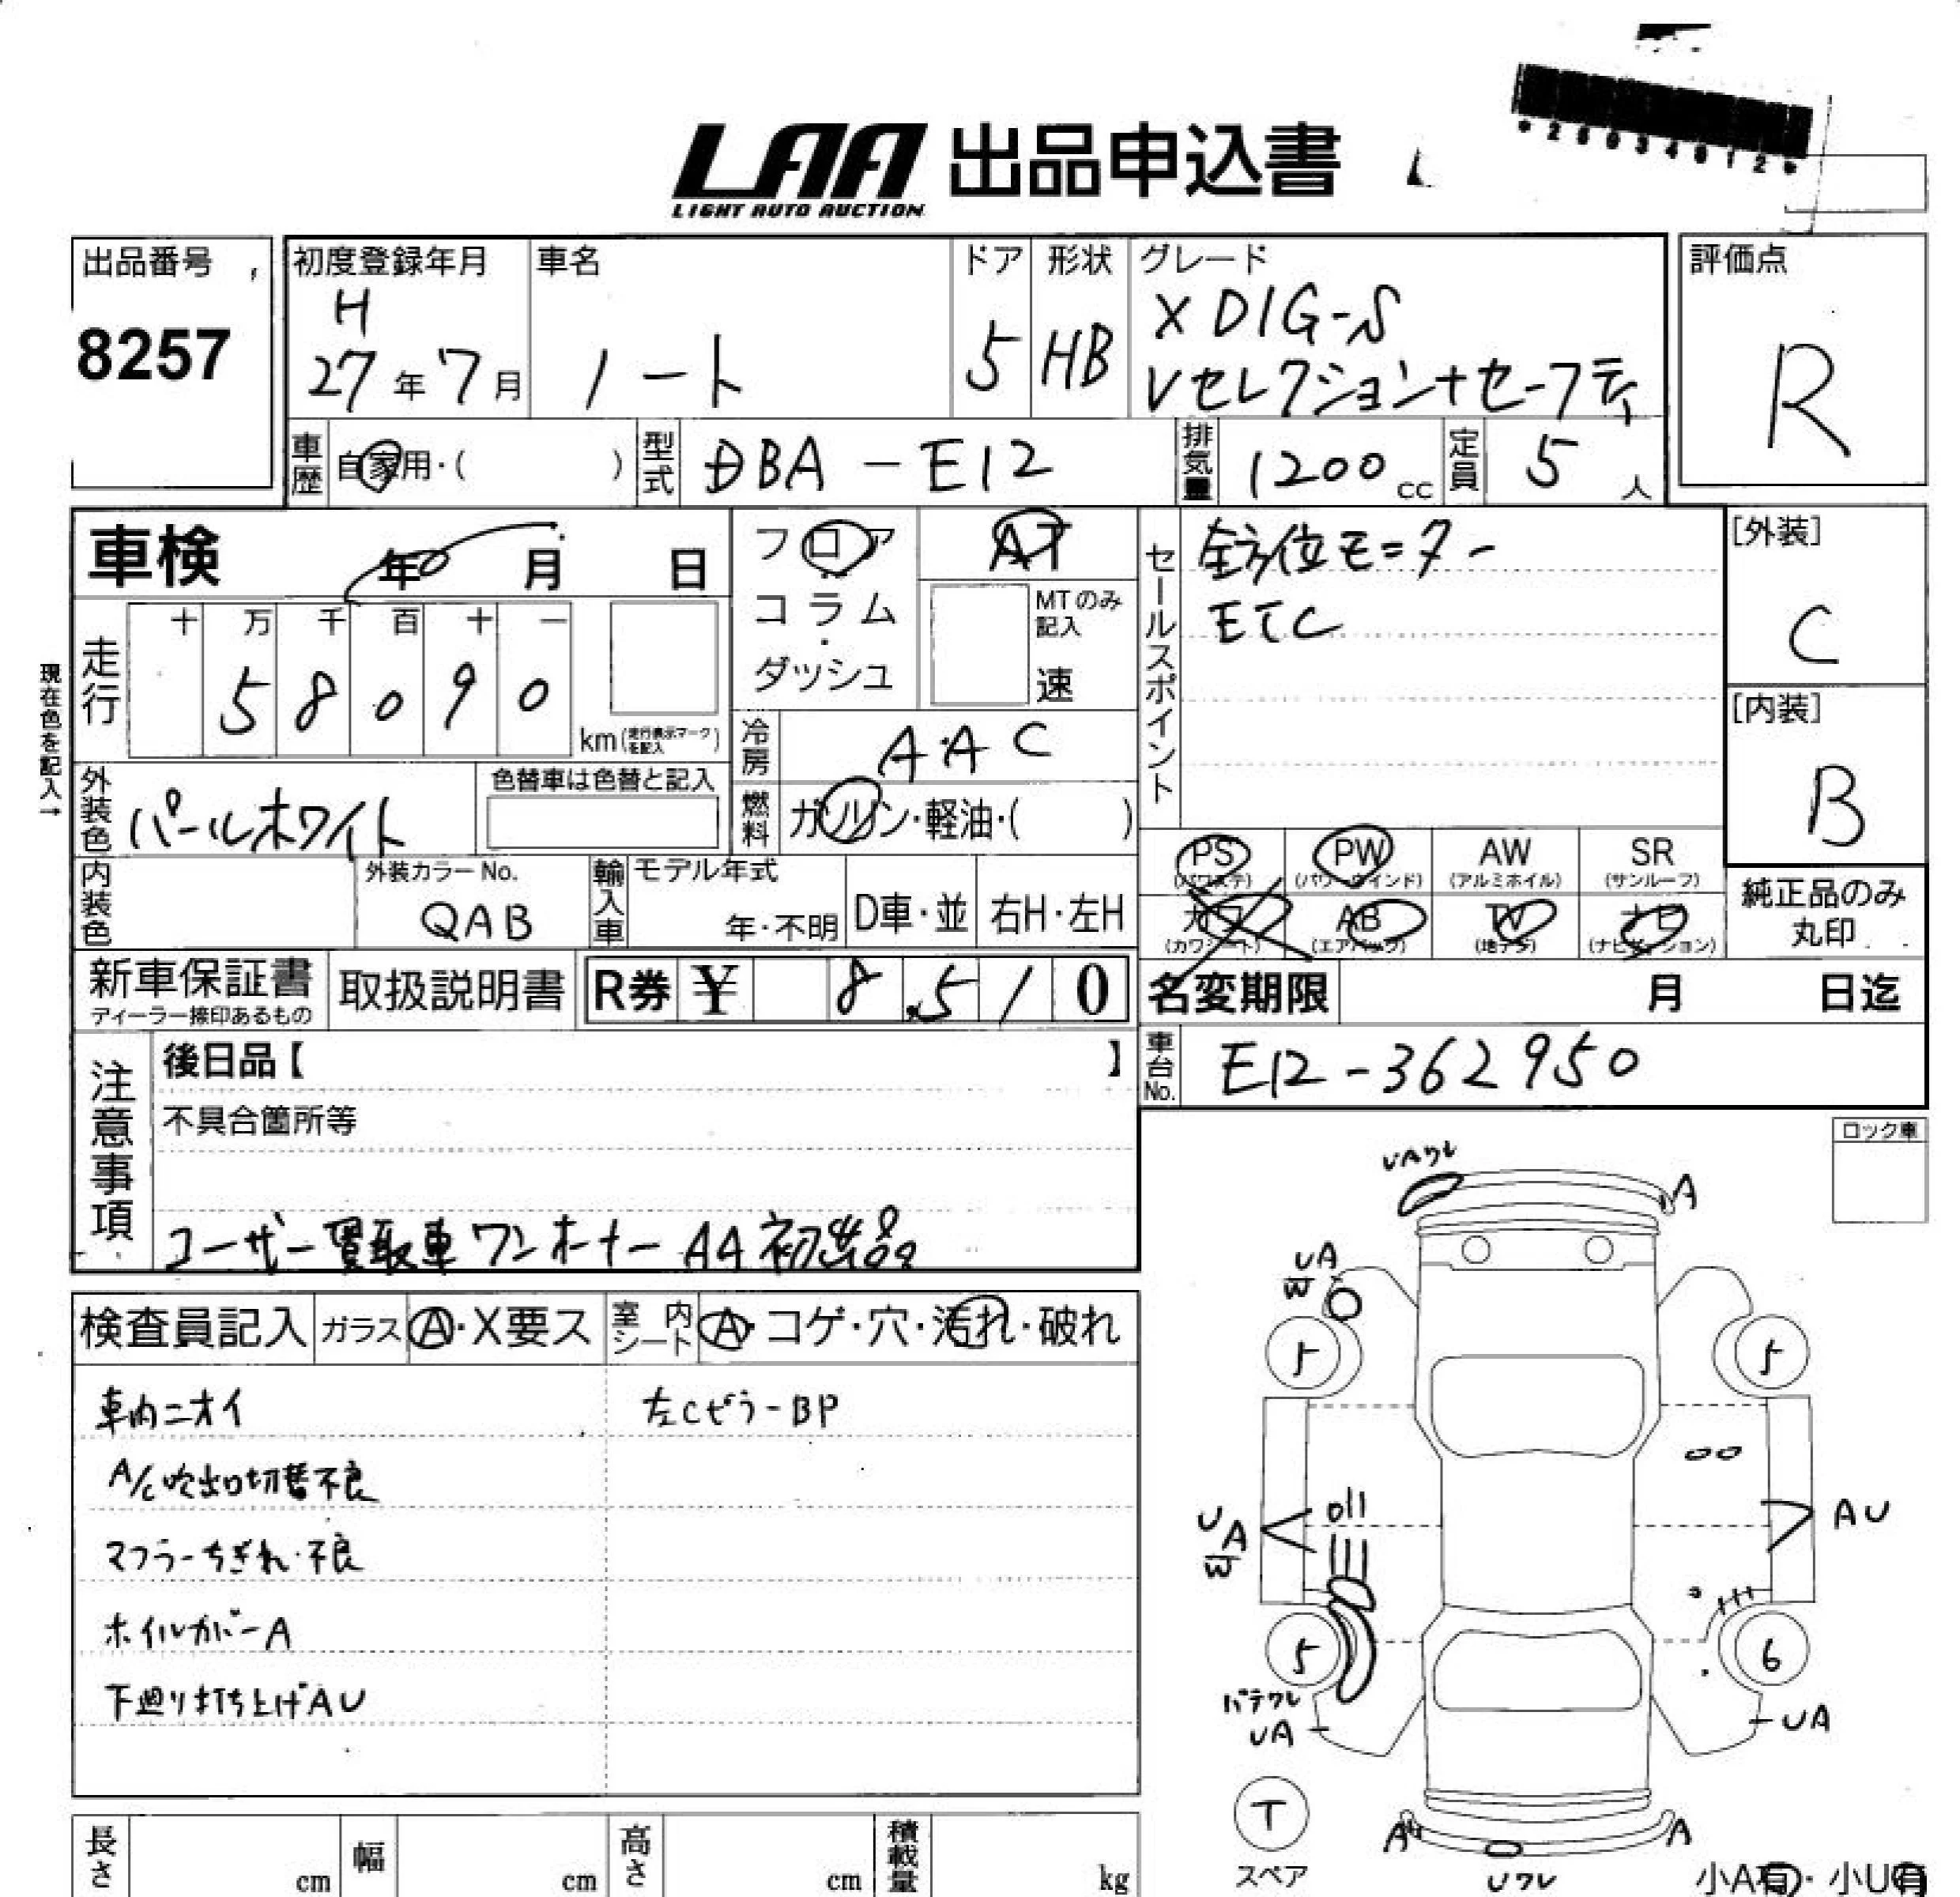 *26034012*
LAA 出品申込書
LIGHT AUTO AUCTION
出品番号
8257
初度登録年月
H
27年7月
車名
ノート
ドア
5
形状
HB
グレード
X DIG-S
Vセレクション+セーフティ
評価点
R
車歴
自家用・( )
型式
DBA-E12
排気量
1200cc
定員
5人
車検 年 月 日
フロア
コラム
・
ダッシュ
AT
MTのみ
記入
速
セールスポイント
全方位モニター
ETC
[外装]
C
[内装]
B
現在色を記入→
走行
十 万 千 百 十 一
5 8 0 9 0
km(走行表示マークを記入)
冷房
AAC
外装色
パールホワイト
色替車は色替と記入
燃料
ガソリン・軽油・( )
PS
(パワステ)
PW
(パワーウインド)
AW
(アルミホイル)
SR
(サンルーフ)
カワ
(カワシート)
AB
(エアバッグ)
TV
(地デジ)
ナビ
(ナビゲーション)
純正品のみ
丸印
内装色
外装カラーNo.
QAB
輸入車
モデル年式
年・不明
D車・並
右H・左H
新車保証書
ディーラー捺印あるもの
取扱説明書
R券 ¥ 8.510
名変期限 月 日迄
車台No.
E12-362950
注意事項
後日品【 】
不具合箇所等
ユーザー買取車 ワンオーナー AA初出品
ロック車
検査員記入
ガラス
A・X要ス
室内シート
A・コゲ・穴・汚れ・破れ
車内ニオイ
左Cピラ-BP
A/C吹出口切替不良
マフラーちぎれ・不良
ホイルカバーA
下廻り打ち上げAU
UAワレ
A
UA
W
5
5
UA
W
AU
5
6
パテワレ
UA
UA
T
スペア
A
A
Uワレ
小A有・小U有
長さ cm
幅 cm
高さ cm
積載量 kg